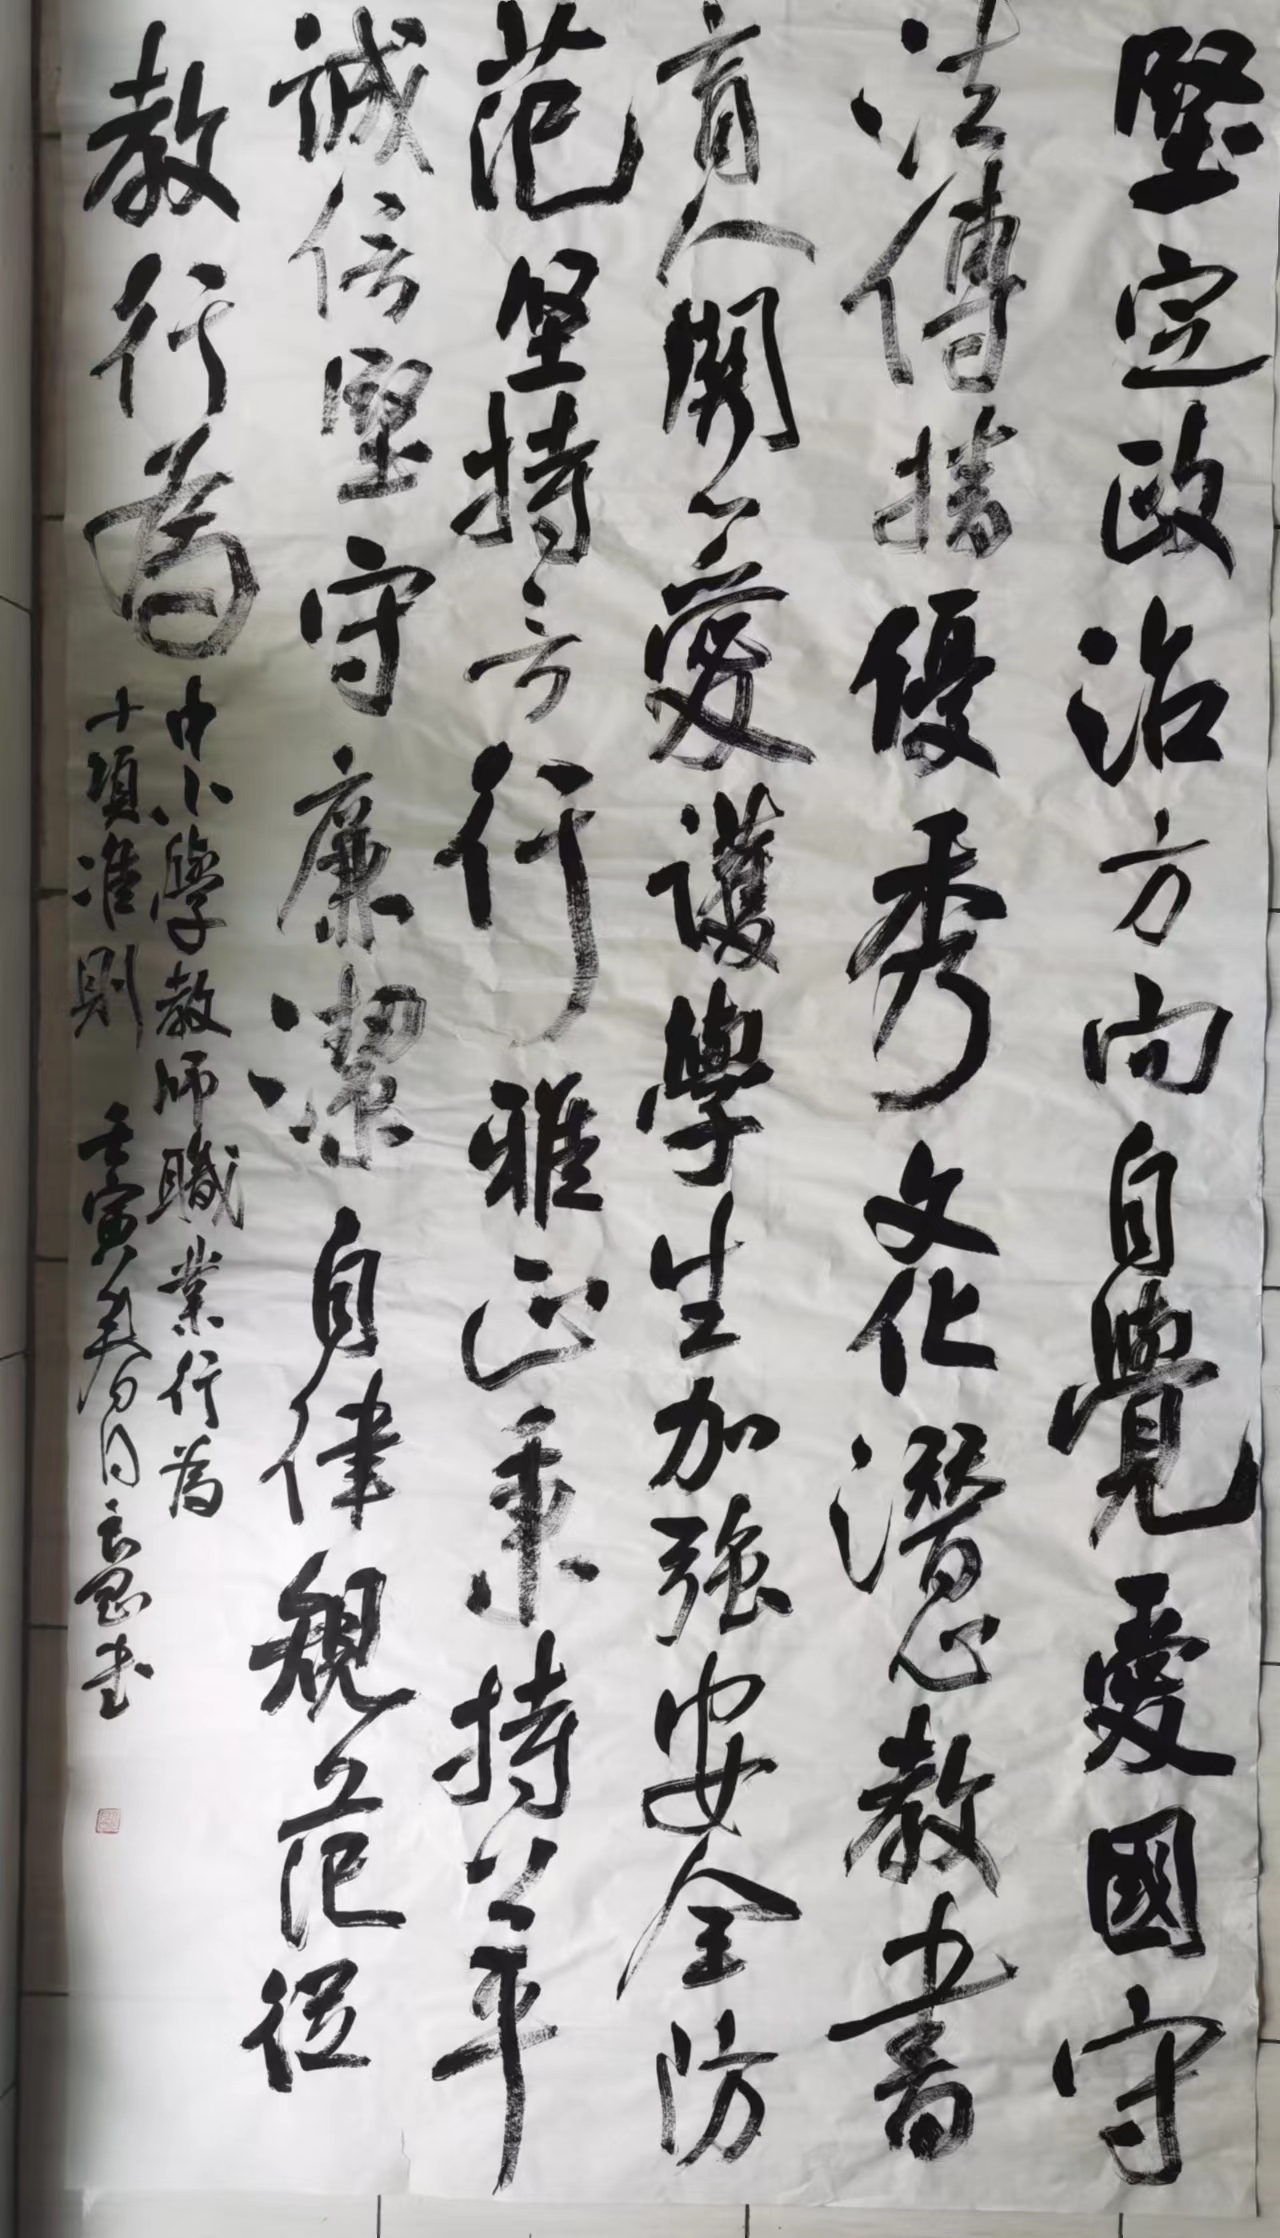 堅定政治方向自覺愛國守
法傳播優秀文化潛心教書
育人關愛護學生加強安全防
范坚持言行雅正秉持公平
誠信堅守廉潔自律規范從
教行為
中小學教師職業行為
十項准則 壬寅春月書